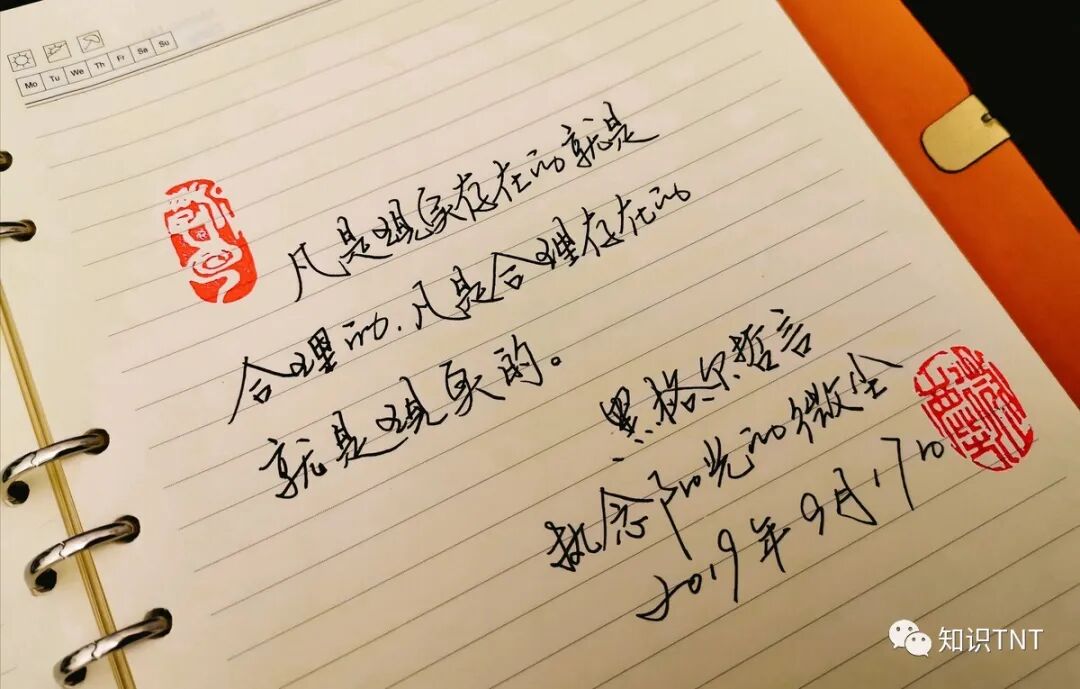 Mo Tu We Th Fr Sa Su
凡是现实存在的就是
合理的.凡是合理存在的
就是现实的。
黑格尔哲言
执念阳光的微尘
2019年9月17日
知识TNT